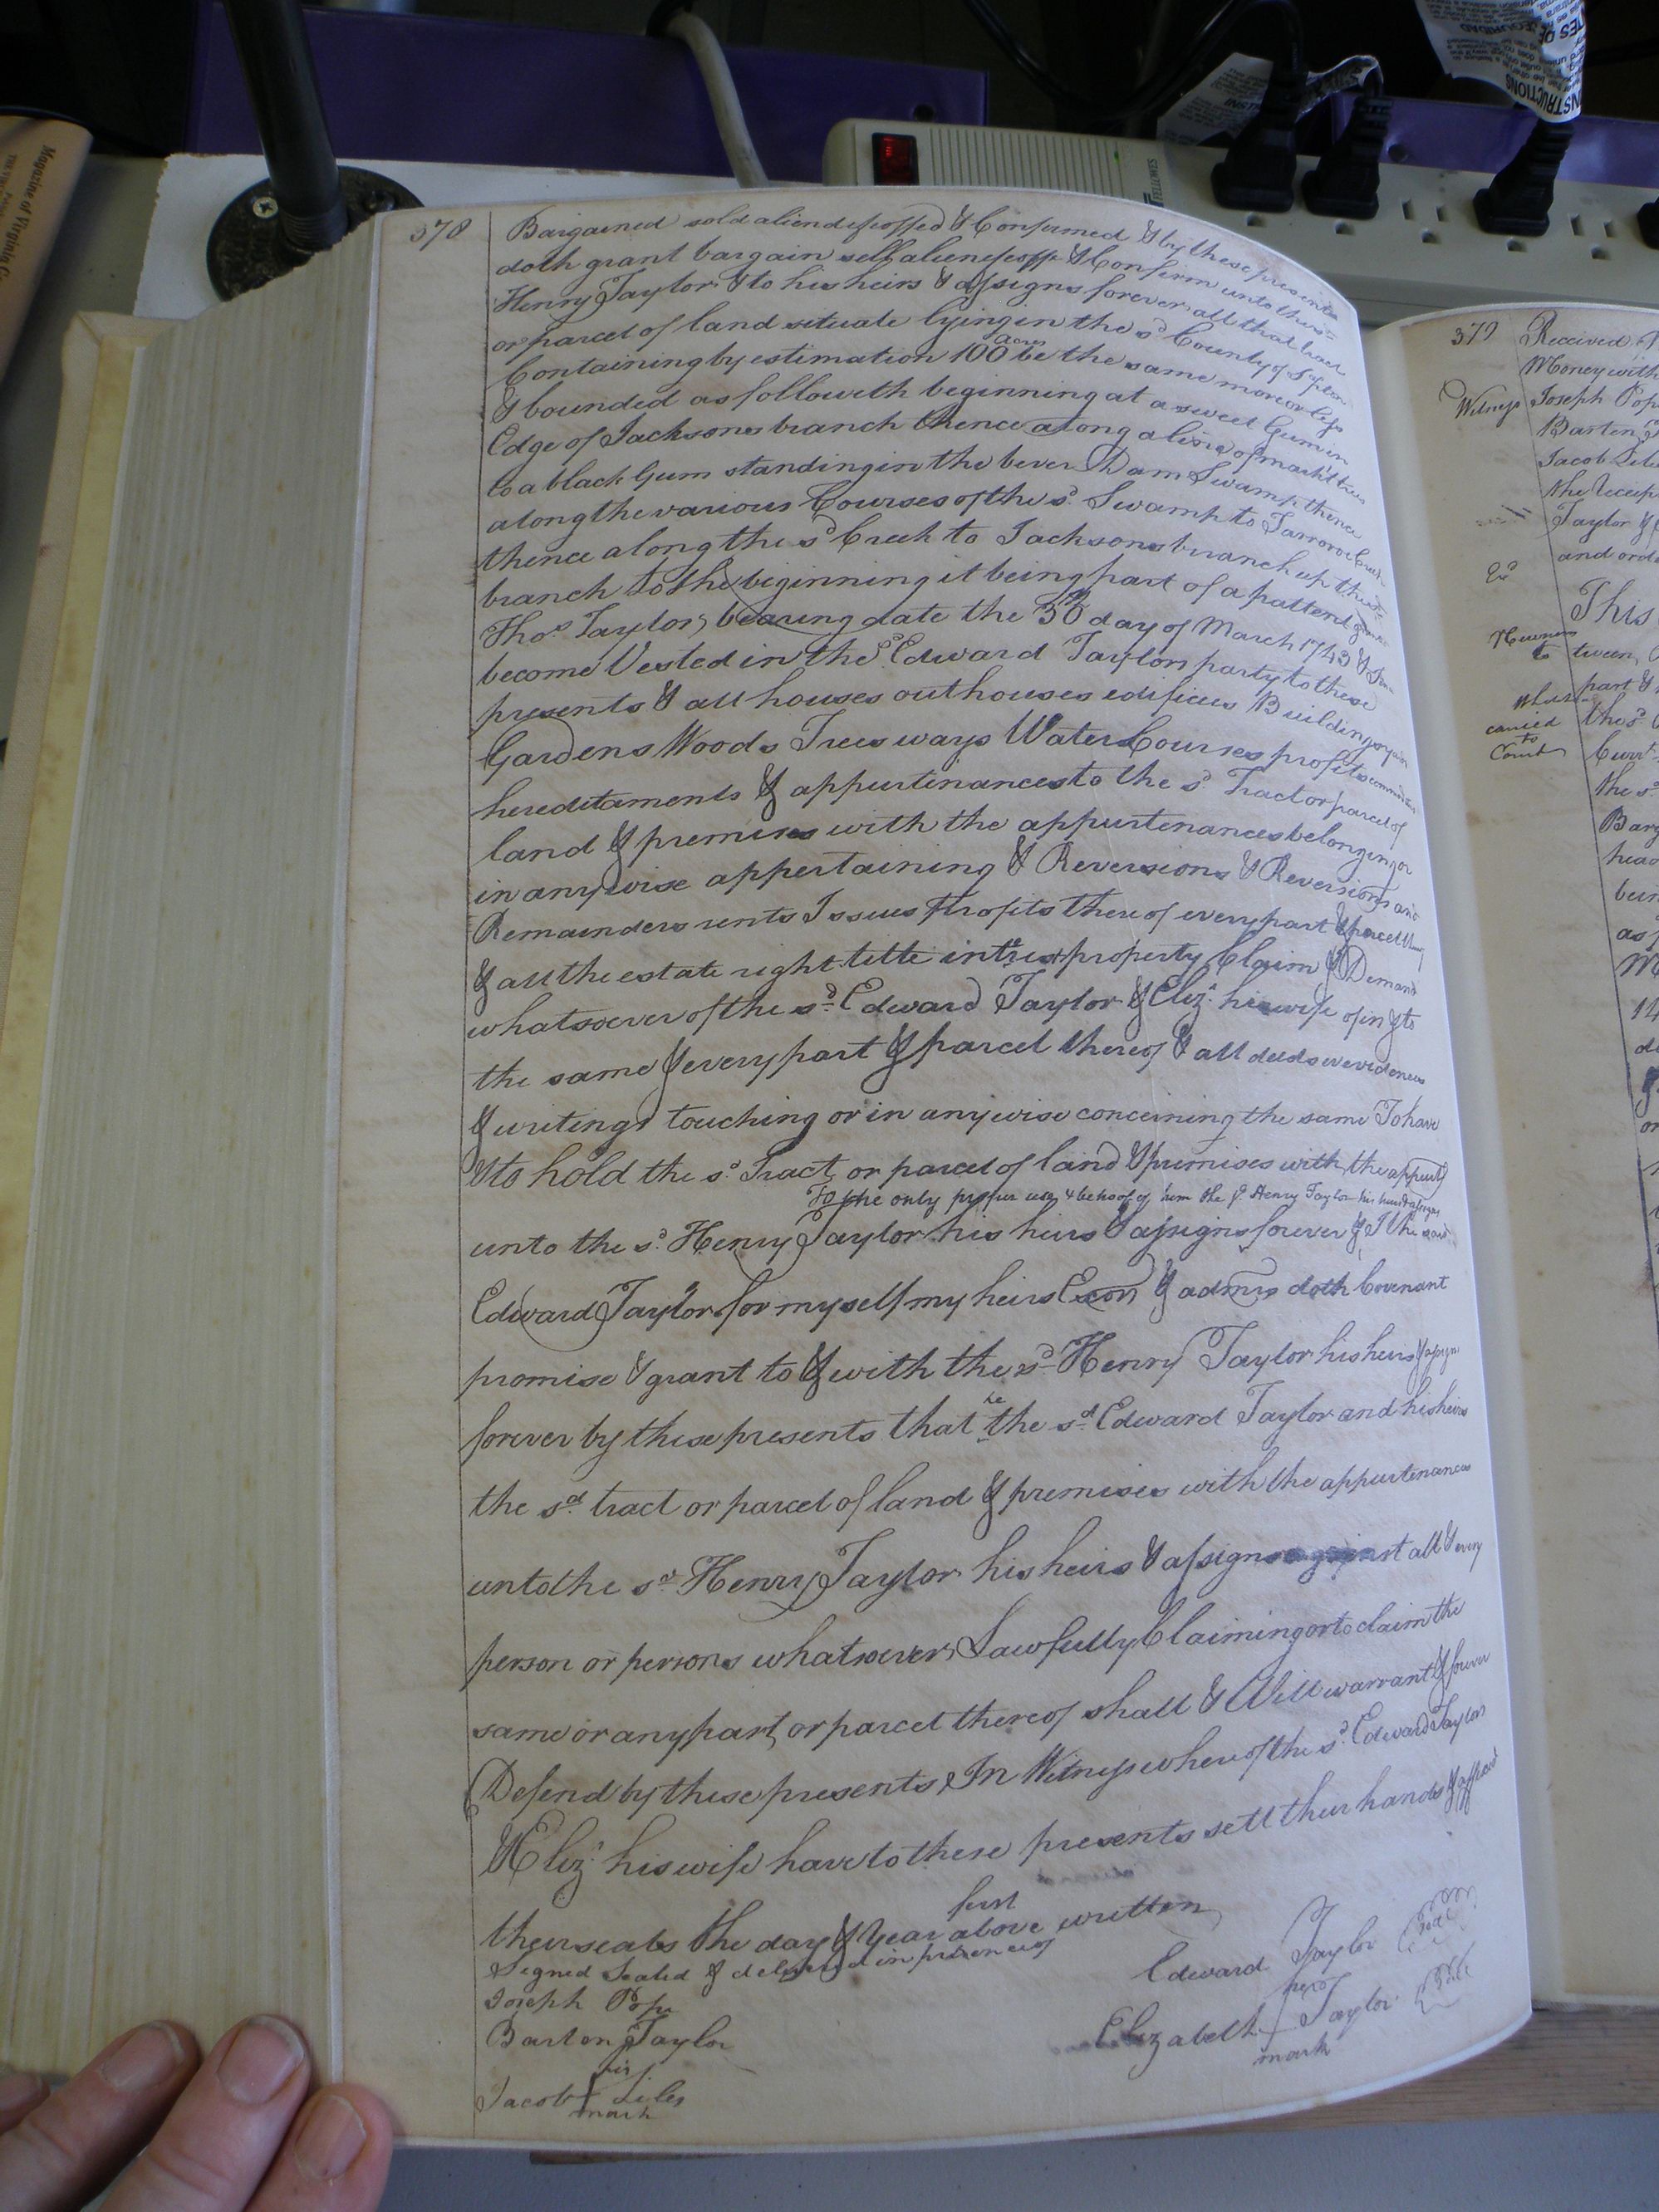 378
Bargained sold aliend efeoffed & Confirmed & by these presents
doth grant bargain sell alien efeoff & Confirm unto the sd
Henry Taylor & to his heirs & assigns forever all that tract
or parcel of land situate lying in the sd County of
Containing by estimation 100 acres be the same more or less
& bounded as followeth beginning at a sweet Gum in
Edge of Jacksons branch thence along a line of markt trees
to a black Gum standing in the bever Dam Swamp thence
along the various Courses of the sd Swamp to Tarrorow Creek
thence along the sd Creek to Jacksons branch up the sd
branch to the beginning it being part of a pattend
Thos Taylor bearing date the 30th day of March 1743 &
become Vested in the sd Edward Taylor party to these
presents & all houses outhouses edifices Buildings
Gardens Woods Trees ways Water Courses profits
hereditaments & appurtinances to the sd Tract or parcel of
land & premises with the appurtenances belonging or
in any wise appertaining & Reversions & Reversions and
Remainders rents Issues Profits there of every part & parcel
& all the estate right title intrest property Claim & Demand
whatsoever of the sd Edward Taylor & Eliza his wife of in & to
the same & every part & parcel thereof & all deeds evidences
& writings touching or in anywise concerning the same To have
& to hold the sd Tract or parcel of land & premises with the appurt
To the only proper use & behoof of him the sd Henry Taylor his heirs & assigns
unto the sd Henry Taylor his heirs & assigns forever & I the said
Edward Taylor for my self my heirs Exors & admrs doth Covenant
promise & grant to & with the sd Henry Taylor his heirs & assigns
forever by these presents that he the sd Edward Taylor and his heirs
the sd tract or parcel of land & premises with the appurtenances
unto the sd Henry Taylor his heirs & assigns against all & every
person or persons whatsoever Lawfully Claiming or to claim the
same or any part or parcel thereof shall & Will warrant & forever
Defend by these presents In Witness whereof the sd Edward Taylor
& Eliza his wife have to these presents sett their hands & affixed
their seals the day & Year first above written
Signed Sealed & delivered in presence of
Edward Taylor Seal
Joseph Pope
Barton Taylor
her
Elizabeth Taylor Seal
mark
his
Jacob Liles
mark
379 Received
Money with
Witness Joseph Pop
Barten
Jacob Lile
the Receip
Taylor &
and ord
This
tween
part &
carried the sd
to
Court
the sd
Barg
head
bein
as
14
Magazine of Virginia G
FELLOWES
INSTRUCTIONS